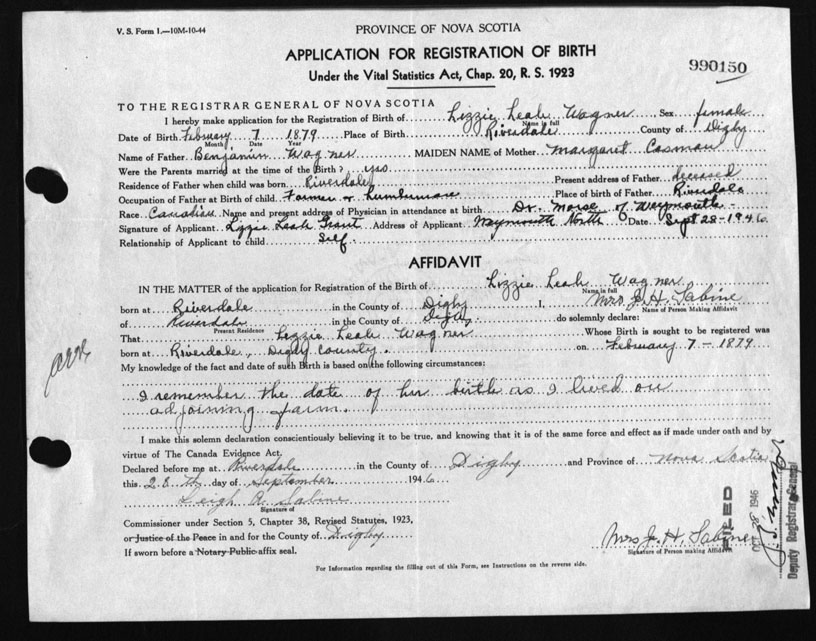 V. S. Form 1.—10M-10-44
PROVINCE OF NOVA SCOTIA
APPLICATION FOR REGISTRATION OF BIRTH
Under the Vital Statistics Act, Chap. 20, R. S. 1923
990150
TO THE REGISTRAR GENERAL OF NOVA SCOTIA
I hereby make application for the Registration of Birth of Lizzie Leah Wagner Sex female
Name in full
Date of Birth February 7 1879 Place of Birth Riverdale County of Digby
Month Date Year
Name of Father Benjamin Wagner MAIDEN NAME of Mother Margaret Cosman
Were the Parents married at the time of the Birth? yes
Residence of Father when child was born Riverdale Present address of Father deceased
Occupation of Father at Birth of child Farmer or Lumberman Place of birth of Father Riverdale
Race Canadian Name and present address of Physician in attendance at birth Dr. Morse of Weymouth
Signature of Applicant Lizzie Leah Grant Address of Applicant Weymouth North Date Sept 28-1946
Relationship of Applicant to child Self.
AFFIDAVIT
IN THE MATTER of the application for Registration of the Birth of Lizzie Leah Wagner
Name in full
born at Riverdale in the County of Digby I, Mrs J. H. Sabine
Name of Person Making Affidavit
of Riverdale in the County of Digby do solemnly declare:
Present Residence
That Lizzie Leah Wagner Whose Birth is sought to be registered was
born at Riverdale, Digby County. on February 7-1879
My knowledge of the fact and date of such Birth is based on the following circumstances:
I remember the date of her birth as I lived on
adjoining farm.
I make this solemn declaration conscientiously believing it to be true, and knowing that it is of the same force and effect as if made under oath and by
virtue of The Canada Evidence Act.
Declared before me at Riverdale in the County of Digby and Province of Nova Scotia
this 28th day of September 1946
Leigh R. Sabine
Signature of
Commissioner under Section 5, Chapter 38, Revised Statutes, 1923,
or Justice of the Peace in and for the County of Digby
If sworn before a Notary Public affix seal.
Mrs J. H. Sabine
Signature of Person making Affidavit
FILED
1946
Deputy Registrar General
For Information regarding the filling out of this Form, see Instructions on the reverse side.